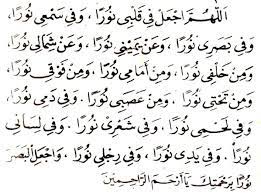 اَللّٰهُمَّ اجْعَلْ فِي قَلْبِي نُوْرًا ، وَفِي سَمْعِي نُوْرًا
وَفِي بَصَرِي نُوْرًا ، وَعَنْ يَمِيْنِي نُوْرًا ، وَعَنْ شِمَالِي نُوْرًا
وَمِنْ خَلْفِي نُوْرًا ، وَمِنْ اَمَامِي نُوْرًا ، وَمِنْ فَوْقِي نُوْرًا
وَمِنْ تَحْتِي نُوْرًا ، وَمِنْ عَصَبِي نُوْرًا . وَفِي دَمِي نُوْرًا
وَفِي لَحْمِي نُوْرًا ، وَفِي شَعْرِي نُوْرًا . وَفِي لِسَانِي
نُوْرًا . وَفِي يَدِي نُوْرًا ، وَفِي رِجْلِي نُوْرًا ، وَاجْعَلِ الْبَصَرَ
نُوْرًا بِرَحْمَتِكَ يَا اَرْحَمَ الرَّاحِمِيْنَ